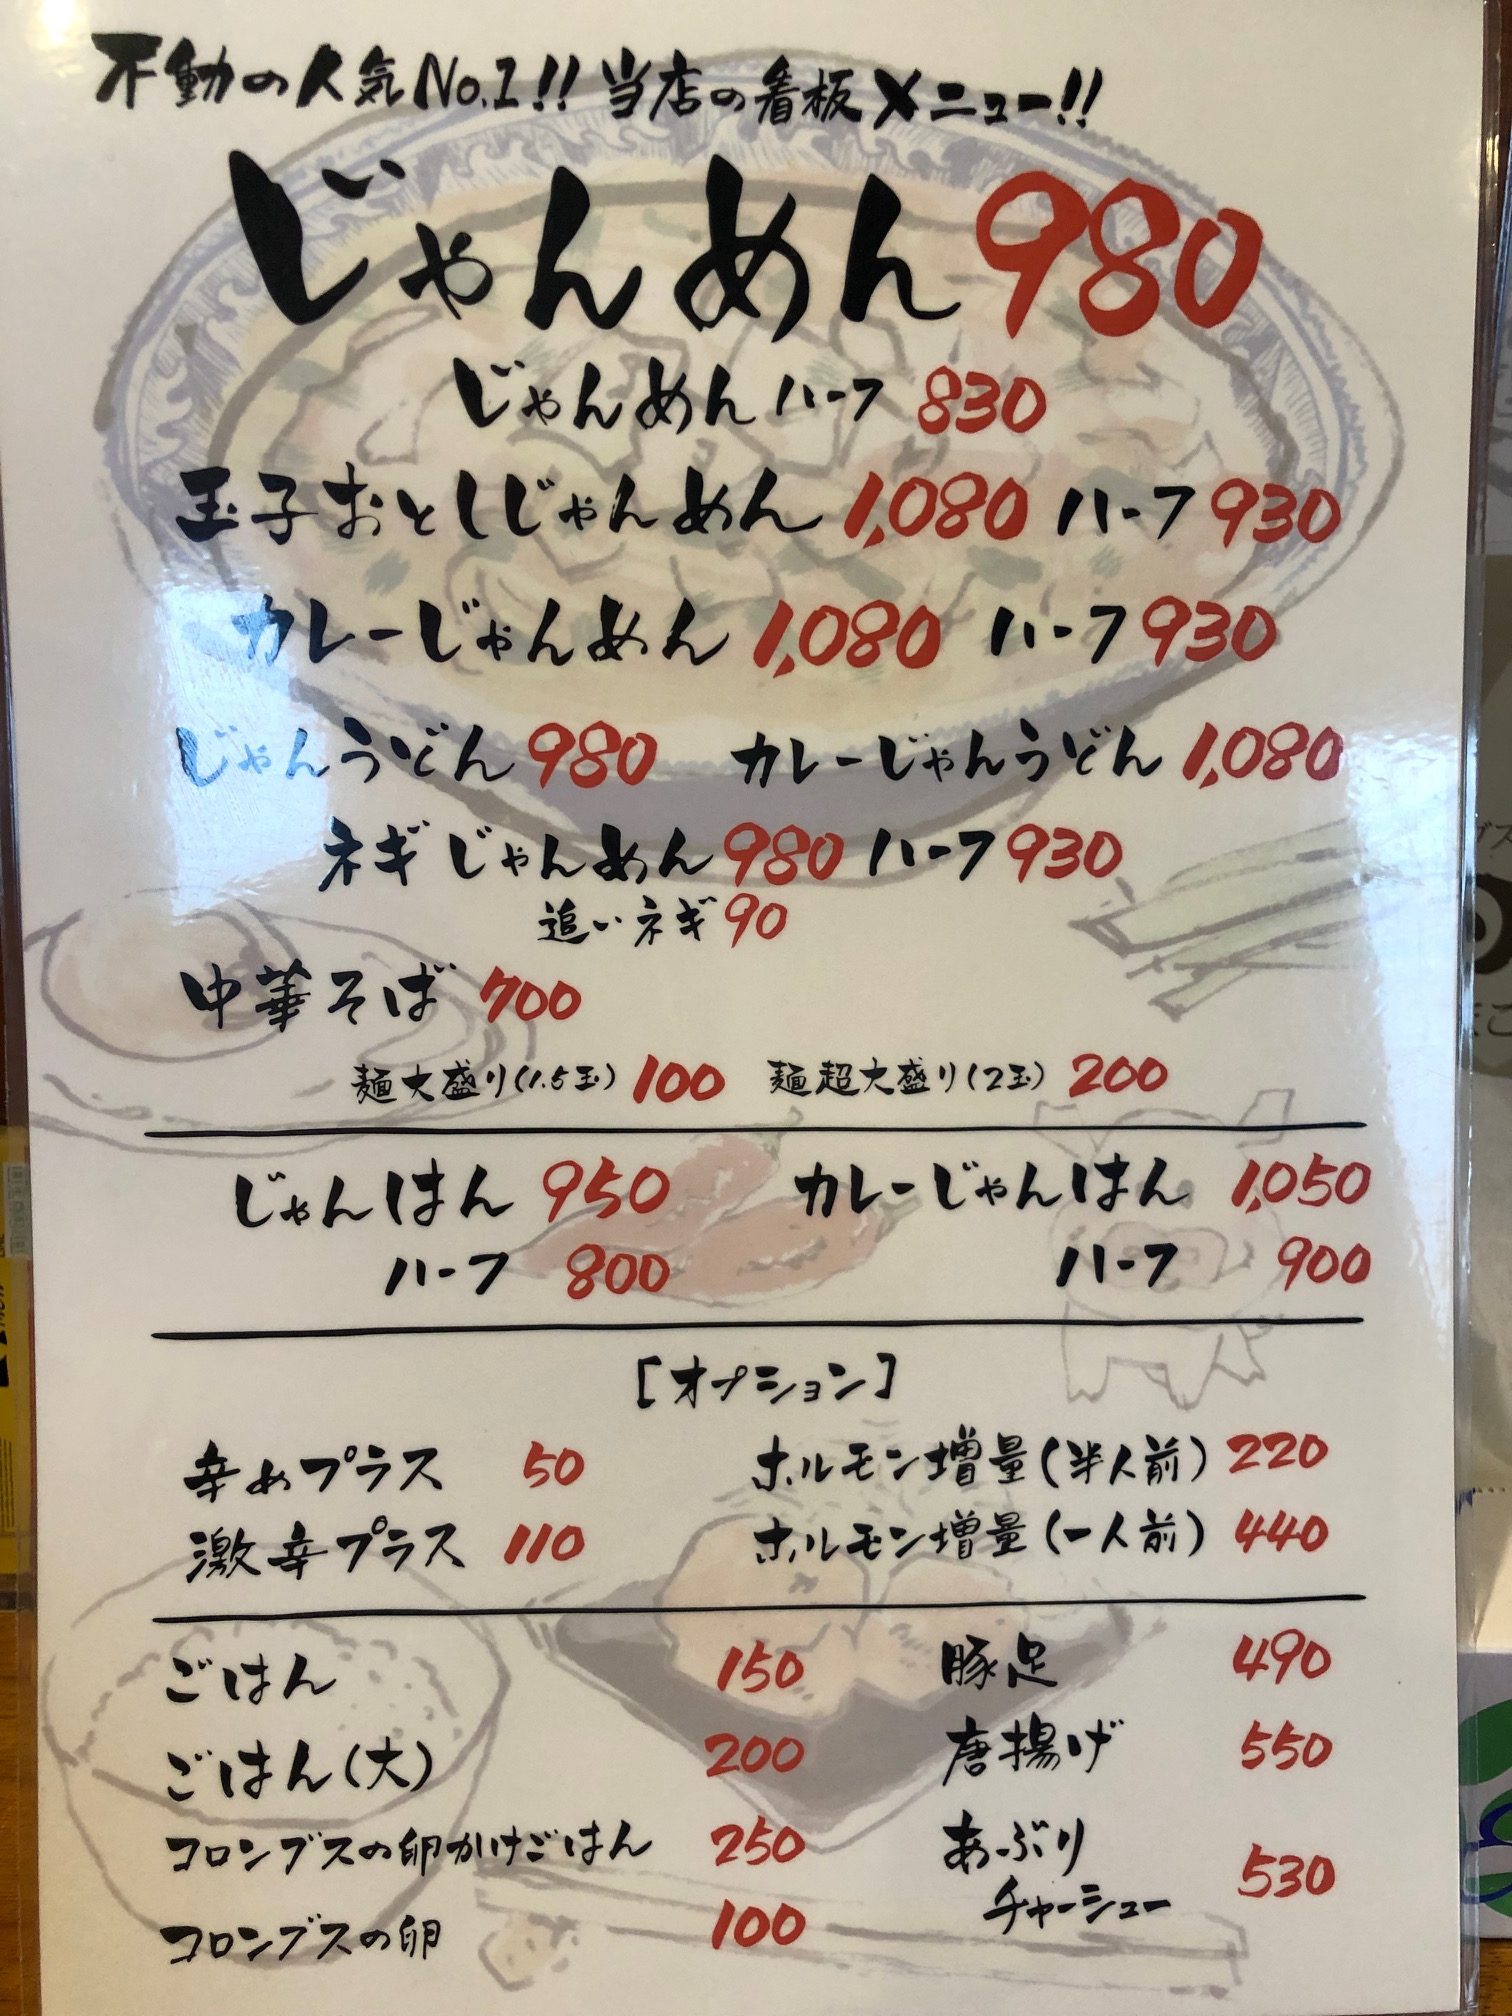 不動の人気No.1!! 当店の看板メニュー!!
じゃんめん 980
じゃんめん ハーフ 830
玉子おとしじゃんめん 1,080 ハーフ 930
カレーじゃんめん 1,080 ハーフ 930
じゃんうどん 980 カレーじゃんうどん 1,080
ネギじゃんめん 980 ハーフ 930
追いネギ 90
中華そば 700
麺大盛り(1.5玉) 100 麺超大盛り(2玉) 200
じゃんはん 950 カレーじゃんはん 1,050
ハーフ 800 ハーフ 900
[オプション]
辛めプラス 50 ホルモン増量(半人前) 220
激辛プラス 110 ホルモン増量(一人前) 440
ごはん 150 豚足 490
ごはん(大) 200 唐揚げ 550
コロンブスの卵かけごはん 250 あぶり
チャーシュー 530
コロンブスの卵 100